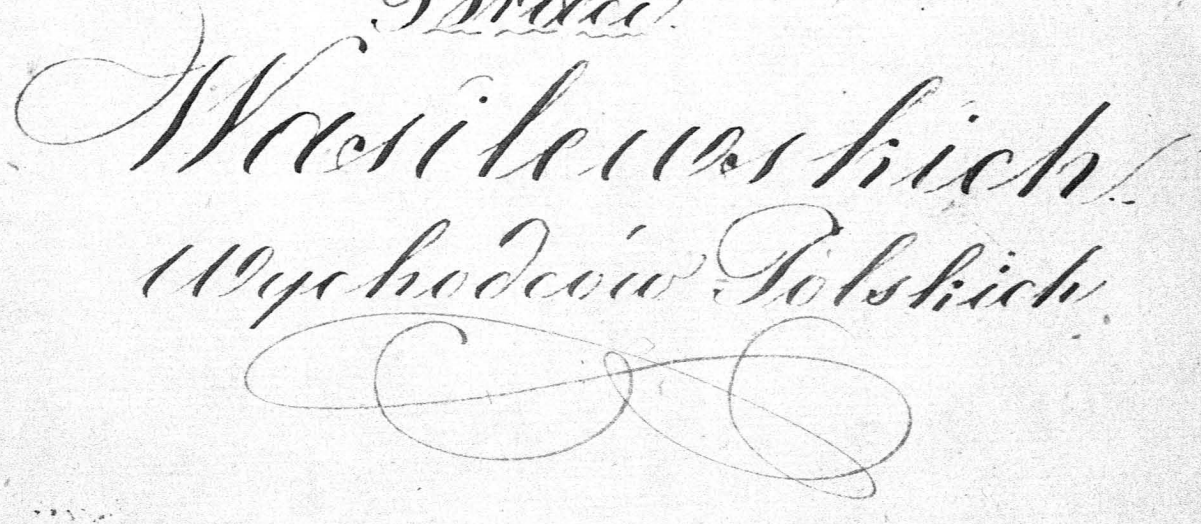 Braci
Wasilewskich
wychodców Polskich